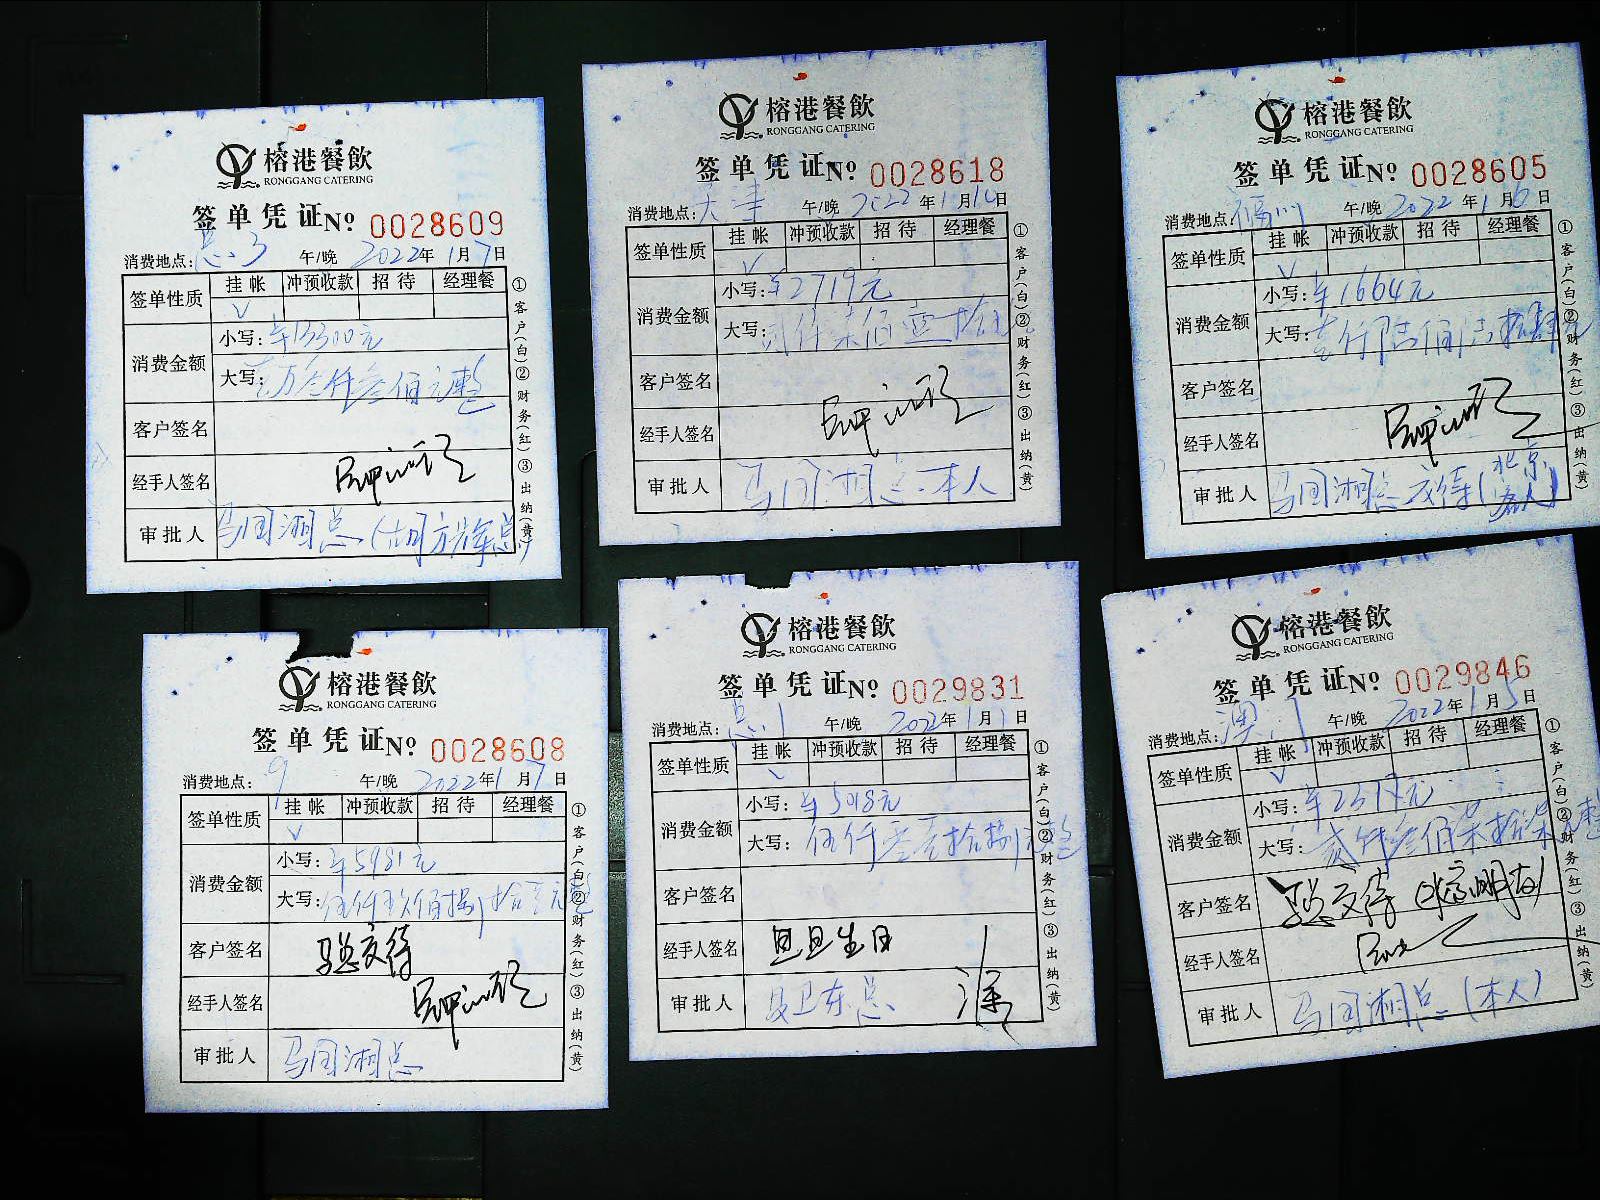 榕港餐飲
RONGGANG CATERING
签单凭证№ 0028609
消费地点: 总3 午/晚 2022年1月7日
签单性质 挂帐 冲预收款 招待 经理餐
√
消费金额 小写: ¥13300元
大写: 壹万叁仟叁佰元整
客户签名
经手人签名
审批人 马国湘总
①客户(白)②财务(红)③出纳(黄)
榕港餐飲
RONGGANG CATERING
签单凭证№ 0028618
消费地点: 天津 午/晚 2022年1月14日
签单性质 挂帐 冲预收款 招待 经理餐
√
消费金额 小写: ¥2719元
大写: 贰仟柒佰壹拾
客户签名
经手人签名
审批人 马国湘总 本人
①客户(白)②财务(红)③出纳(黄)
榕港餐飲
RONGGANG CATERING
签单凭证№ 0028605
消费地点: 福州 午/晚 2022年1月6日
签单性质 挂帐 冲预收款 招待 经理餐
√
消费金额 小写: ¥1664元
大写: 壹仟陆佰陆拾肆元
客户签名
经手人签名
审批人 马国湘总 交待(北京客人)
①客户(白)②财务(红)③出纳(黄)
榕港餐飲
RONGGANG CATERING
签单凭证№ 0028608
消费地点: 9 午/晚 2022年1月7日
签单性质 挂帐 冲预收款 招待 经理餐
√
消费金额 小写: ¥5981元
大写: 伍仟玖佰捌拾壹元整
客户签名 马总交待
经手人签名
审批人 马国湘总
①客户(白)②财务(红)③出纳(黄)
榕港餐飲
RONGGANG CATERING
签单凭证№ 0029831
消费地点: 总1 午/晚 2022年1月1日
签单性质 挂帐 冲预收款 招待 经理餐
√
消费金额 小写: ¥5018元
大写: 伍仟零壹拾捌元整
客户签名
经手人签名 旦旦生日
审批人 吴卫东总
①客户(白)②财务(红)③出纳(黄)
榕港餐飲
RONGGANG CATERING
签单凭证№ 0029846
消费地点: 澳门 午/晚 2022年1月5日
签单性质 挂帐 冲预收款 招待 经理餐
√
消费金额 小写: ¥2377元
大写: 贰仟叁佰柒拾柒元整
客户签名 马总交待
经手人签名
审批人 马国湘总(本人)
①客户(白)②财务(红)③出纳(黄)